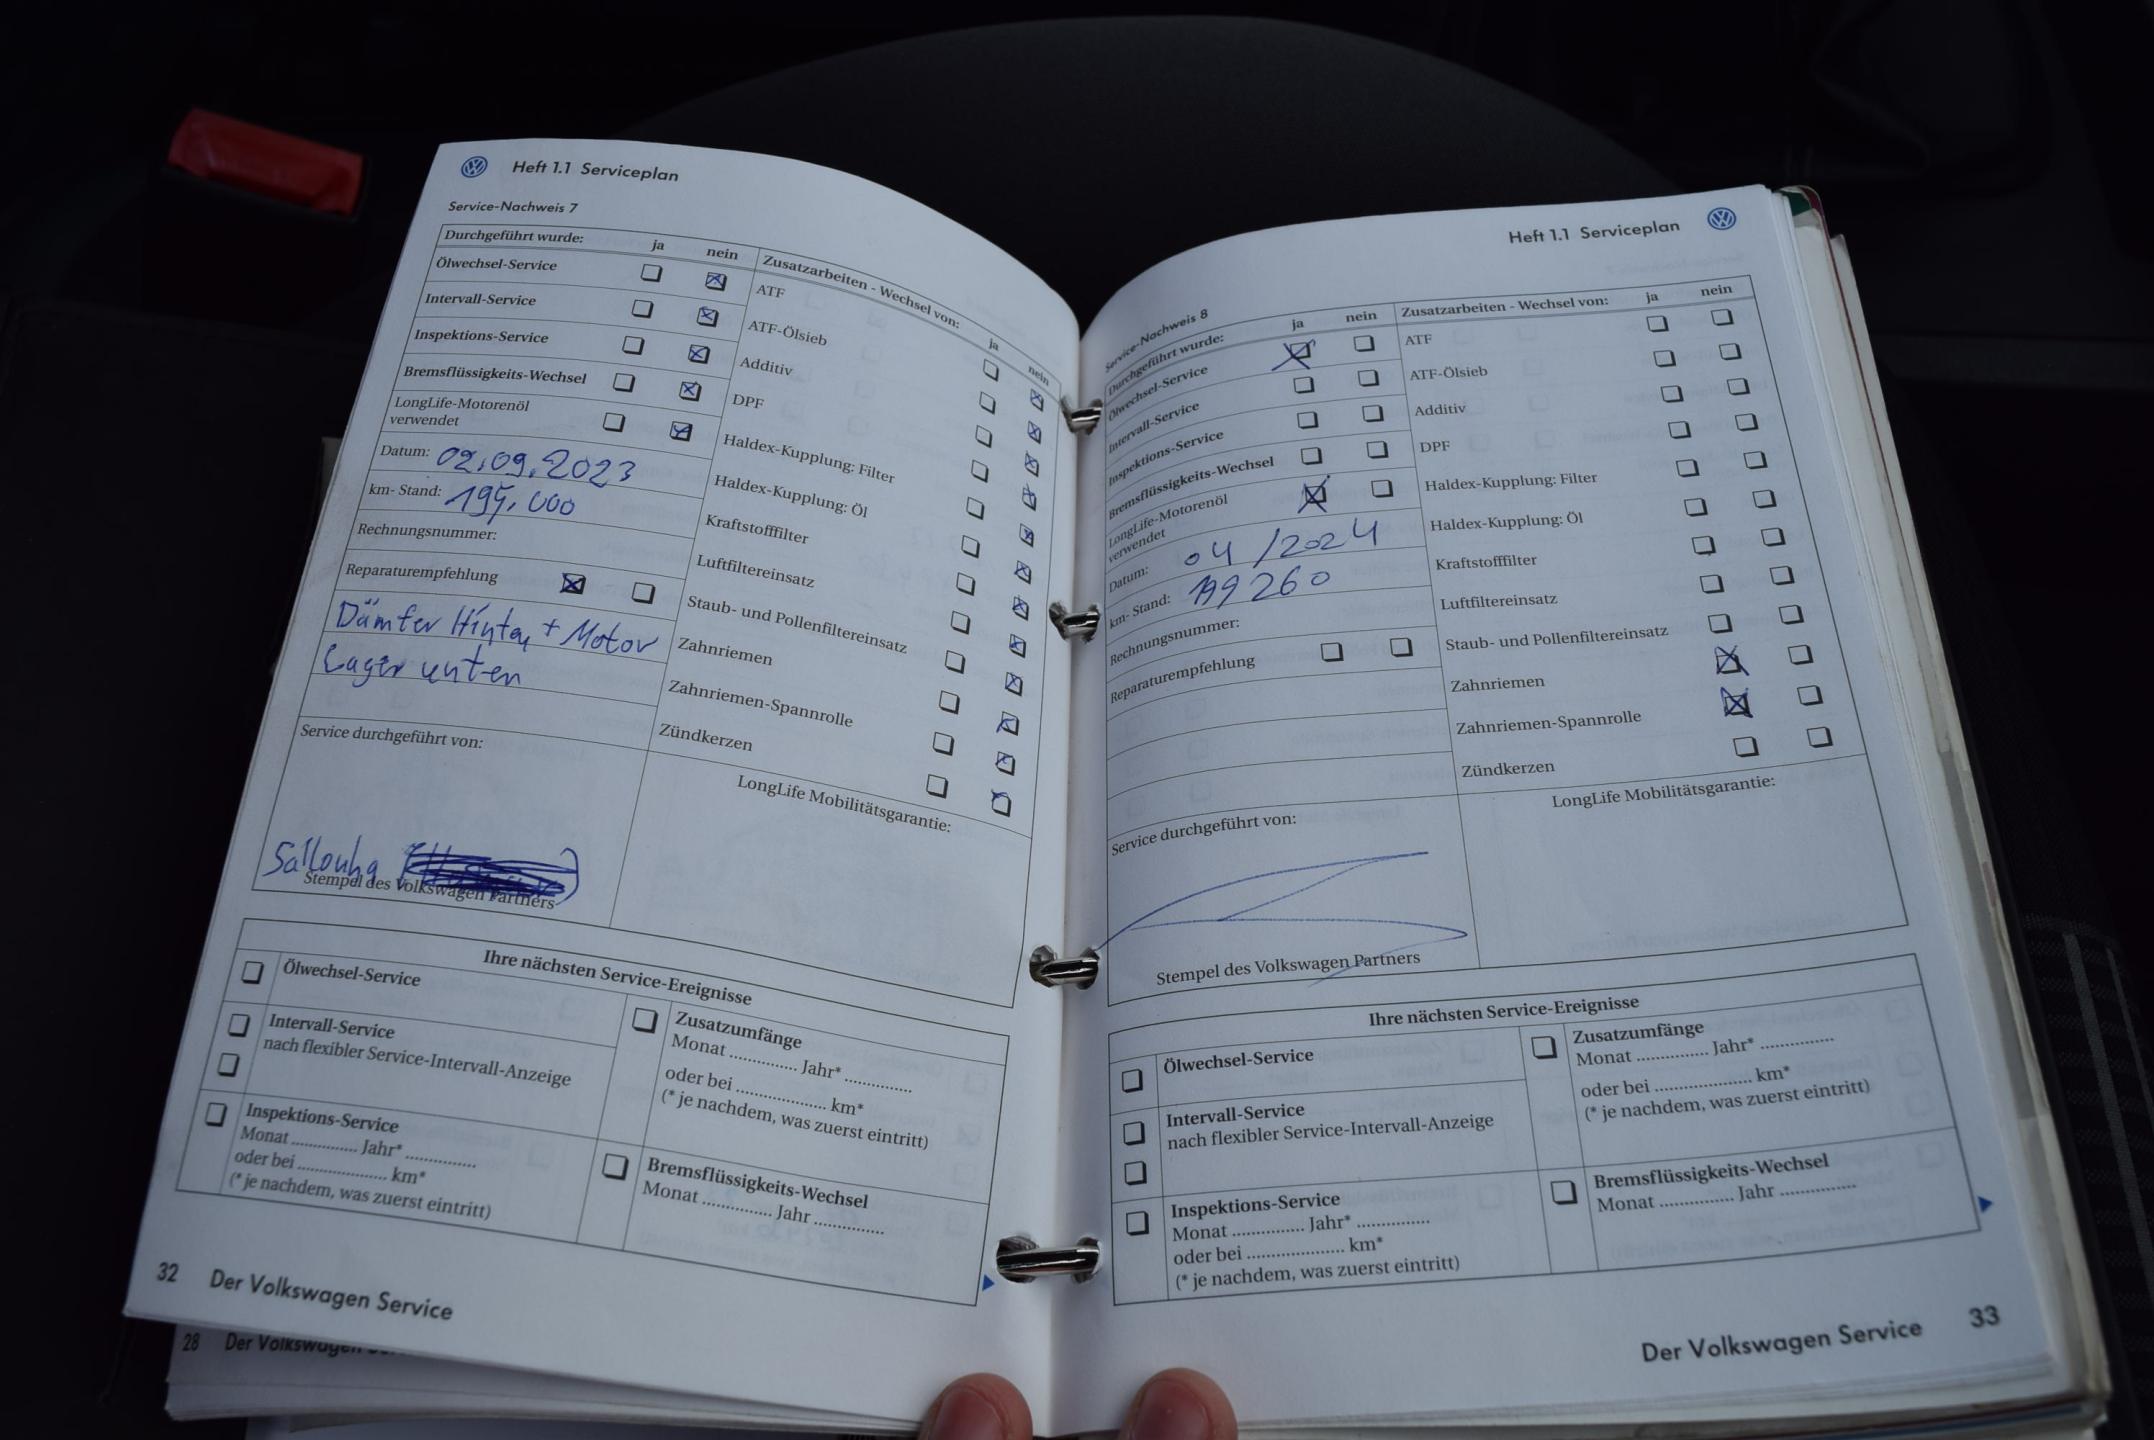 Heft 1.1 Serviceplan
Service-Nachweis 7
Durchgeführt wurde: ja nein
Ölwechsel-Service
Intervall-Service
Inspektions-Service
Bremsflüssigkeits-Wechsel
LongLife-Motorenöl
verwendet
Datum: 02.09.2023
km- Stand: 195.000
Rechnungsnummer:
Reparaturempfehlung
Dämfer Hinten + Motor
Lager unten
Service durchgeführt von:
Sallouha
Stempel des Volkswagen Partners
Zusatzarbeiten - Wechsel von: ja nein
ATF
ATF-Ölsieb
Additiv
DPF
Haldex-Kupplung: Filter
Haldex-Kupplung: Öl
Kraftstofffilter
Luftfiltereinsatz
Staub- und Pollenfiltereinsatz
Zahnriemen
Zahnriemen-Spannrolle
Zündkerzen
LongLife Mobilitätsgarantie:
Ihre nächsten Service-Ereignisse
Ölwechsel-Service
Intervall-Service
nach flexibler Service-Intervall-Anzeige
Inspektions-Service
Monat ............. Jahr* ..............
oder bei .................. km*
(* je nachdem, was zuerst eintritt)
Zusatzumfänge
Monat ............. Jahr* .............
oder bei .................. km*
(* je nachdem, was zuerst eintritt)
Bremsflüssigkeits-Wechsel
Monat ............. Jahr .............
32 Der Volkswagen Service
28 Der Volkswagen
Heft 1.1 Serviceplan
Service-Nachweis 8
Durchgeführt wurde: ja nein
Ölwechsel-Service
Intervall-Service
Inspektions-Service
Bremsflüssigkeits-Wechsel
LongLife-Motorenöl
verwendet
Datum: 04/2024
km- Stand: 199260
Rechnungsnummer:
Reparaturempfehlung
Service durchgeführt von:
Stempel des Volkswagen Partners
Zusatzarbeiten - Wechsel von: ja nein
ATF
ATF-Ölsieb
Additiv
DPF
Haldex-Kupplung: Filter
Haldex-Kupplung: Öl
Kraftstofffilter
Luftfiltereinsatz
Staub- und Pollenfiltereinsatz
Zahnriemen
Zahnriemen-Spannrolle
Zündkerzen
LongLife Mobilitätsgarantie:
Ihre nächsten Service-Ereignisse
Ölwechsel-Service
Intervall-Service
nach flexibler Service-Intervall-Anzeige
Inspektions-Service
Monat ............. Jahr* .............
oder bei .................. km*
(* je nachdem, was zuerst eintritt)
Zusatzumfänge
Monat ............. Jahr* .............
oder bei .................. km*
(* je nachdem, was zuerst eintritt)
Bremsflüssigkeits-Wechsel
Monat ............. Jahr .............
Der Volkswagen Service 33